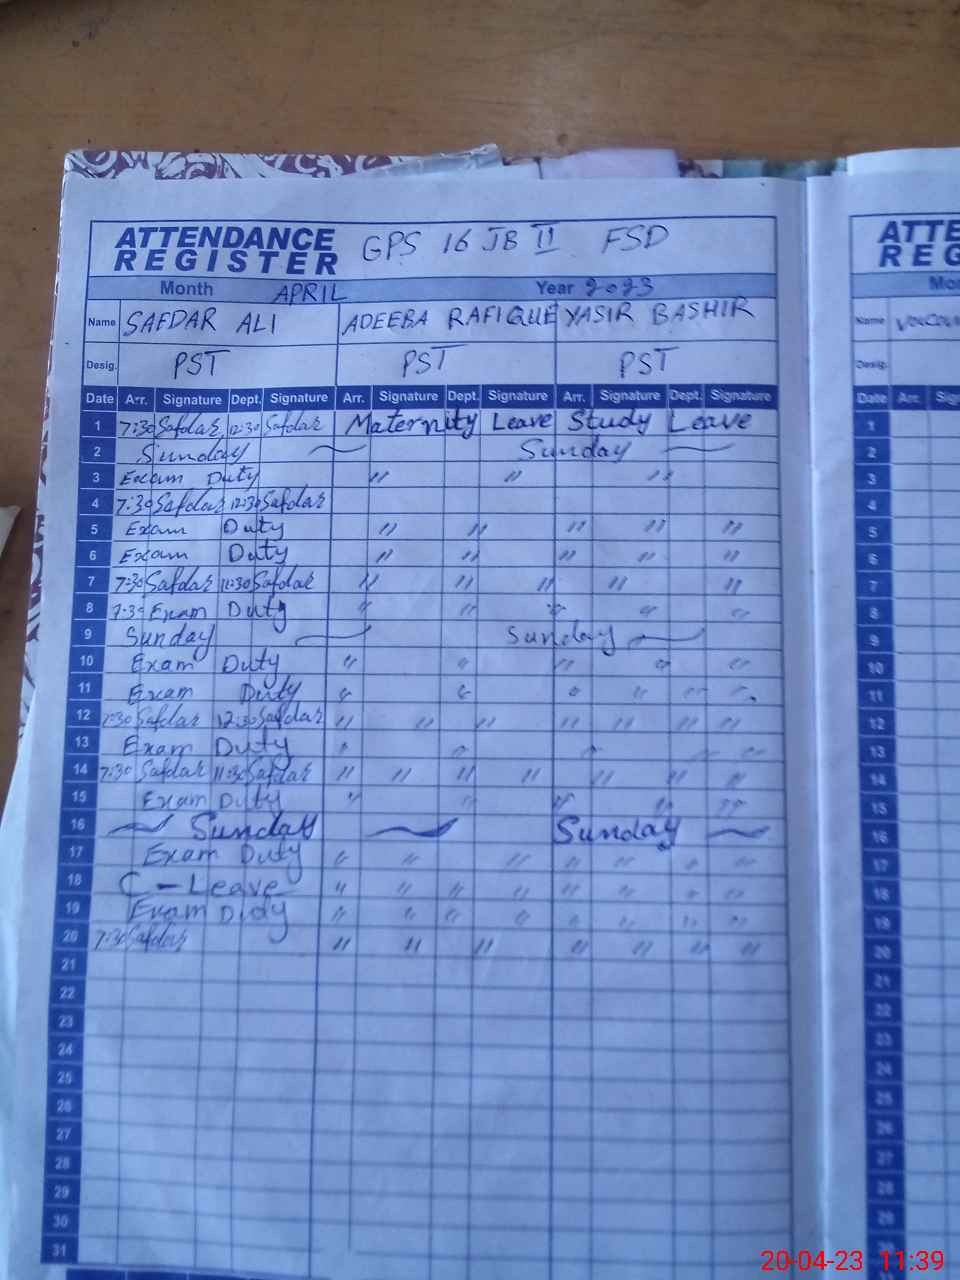 ATTENDANCE REGISTER GPS 16 JB II FSD
Month APRIL Year 2023
Name SAFDAR ALI ADEEBA RAFIQUE YASIR BASHIR
Desig. PST PST PST
Date Arr. Signature Dept. Signature Arr. Signature Dept. Signature Arr. Signature Dept. Signature
1 7:30 Safdar 12:30 Safdar Maternity Leave Study Leave
2 Sunday Sunday
3 Exam Duty " " "
4 7:30 Safdar 12:30 Safdar
5 Exam Duty " " " " "
6 Exam Duty " " " " "
7 7:30 Safdar 11:30 Safdar " " " " "
8 7:30 Exam Duty " " " " "
9 Sunday Sunday
10 Exam Duty " " " " "
11 Exam Duty " " " " " "
12 7:30 Safdar 12:30 Safdar " " " " " " "
13 Exam Duty " " " " "
14 7:30 Safdar 11:30 Safdar " " " " " " "
15 Exam Duty " " " " "
16 Sunday Sunday
17 Exam Duty " " " " " " "
18 C - Leave " " " " " " " "
19 Exam Duty " " " " " " " "
20 7:30 Safdar " " " " " " "
21
22
23
24
25
26
27
28
29
30
31
ATTE
REG
Mo
Name
Desig.
Date Arr. Sig
1
2
3
4
5
6
7
8
9
10
11
12
13
14
15
16
17
18
19
20
21
22
23
24
25
26
27
28
29
30
20-04-23 11:39